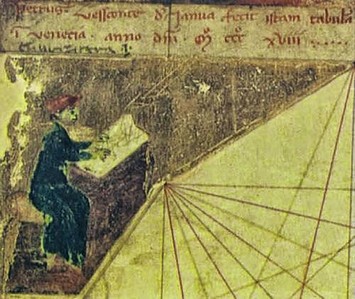 Petrus Vesconte d' Janua fecit istam tabulā
ī Venecia . anno dñi . mͦ ccc xviii .....